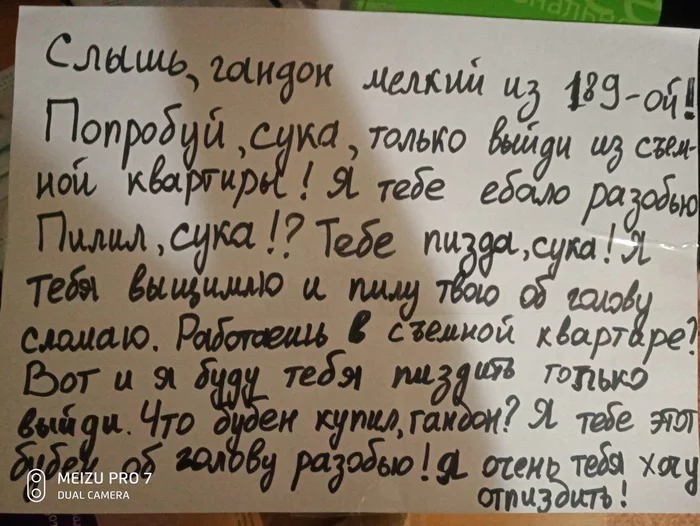 Слышь, гандон мелкий из 189-ой!
Попробуй, сука, только выйди из съем-
ной квартиры! Я тебе ебало разобью
Пилил, сука!? Тебе пизда, сука! Я
тебя выщимлю и пилу твою об голову
сломаю. Работаешь в съемной квартаре?
Вот и я буду тебя пиздить только
выйди. Что бубен купил, гандон? Я тебе этот
бубен об голову разобью! Я очень тебя хочу
отпиздить!
MEIZU PRO 7
DUAL CAMERA